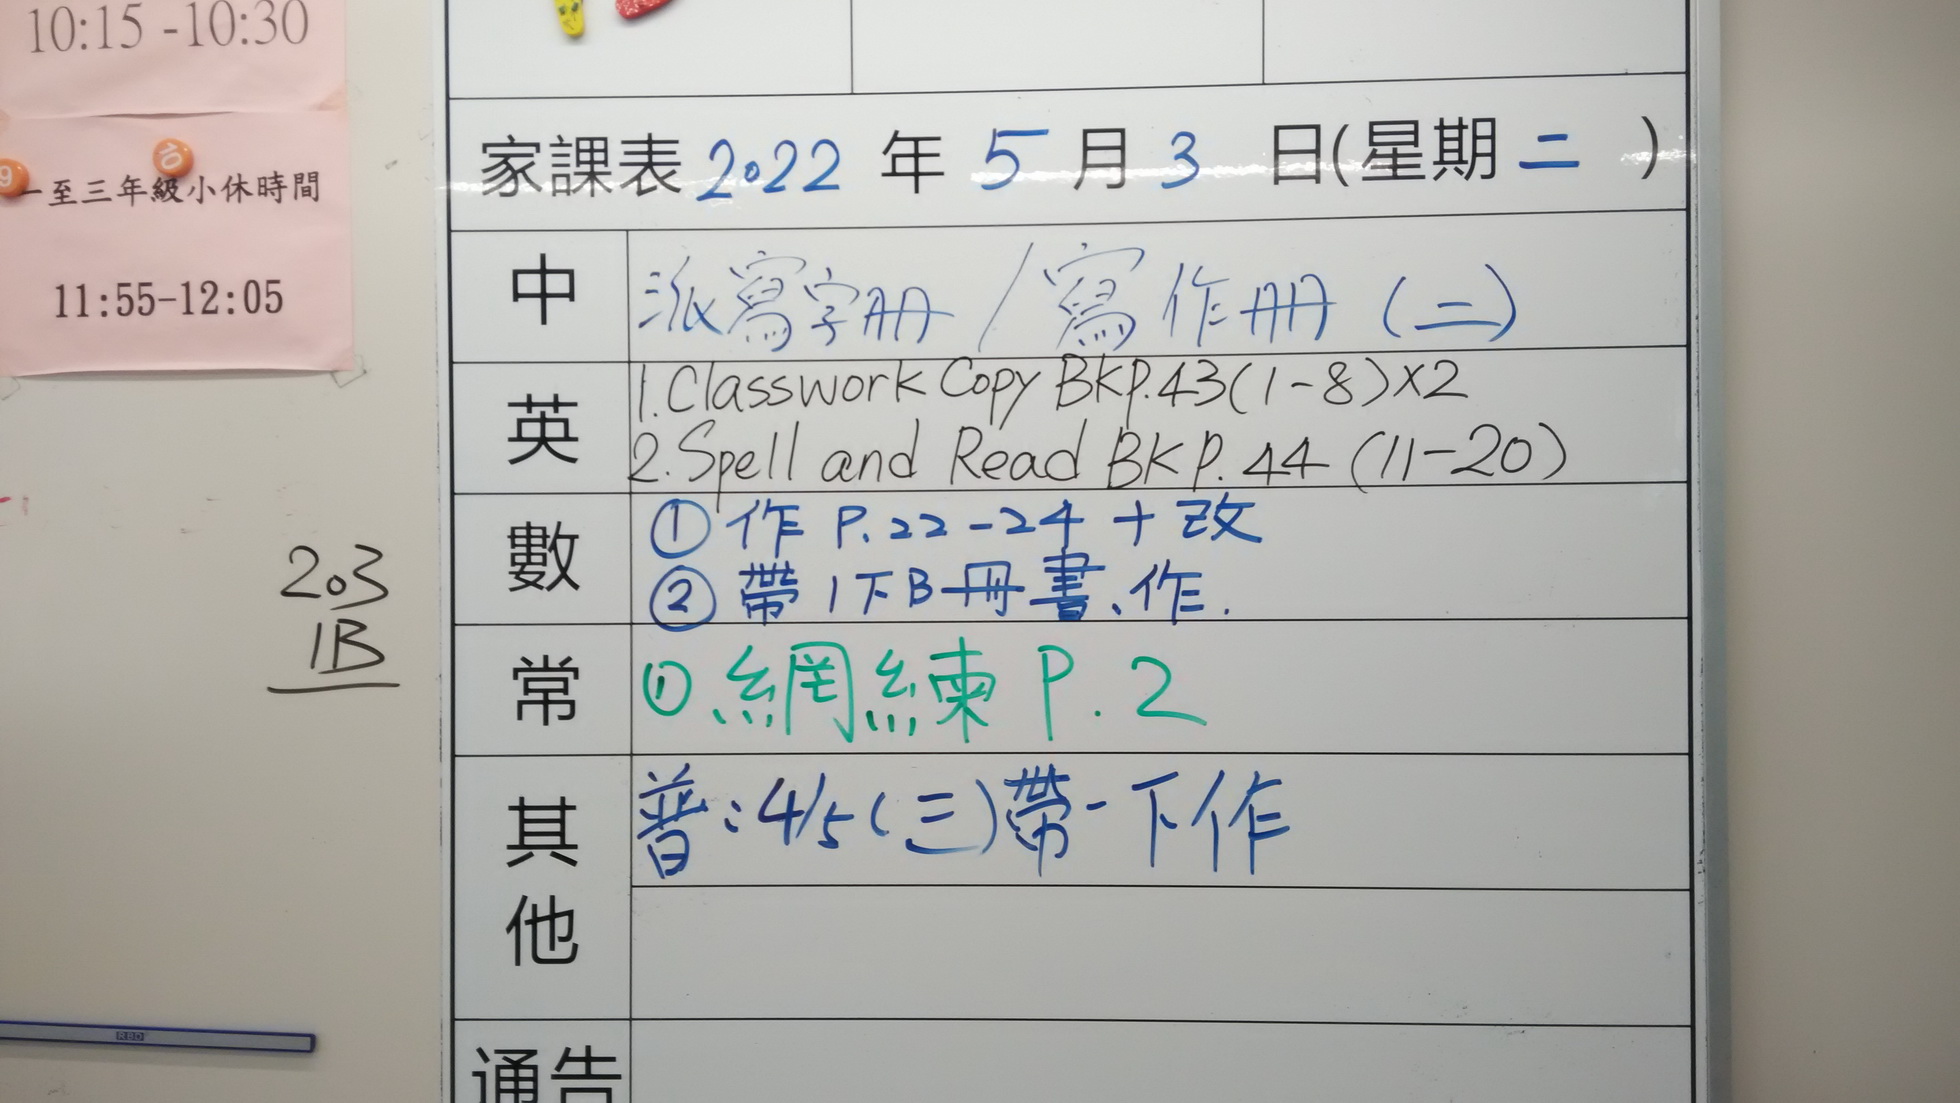 10:15 -10:30
10
9
一至三年級小休時間
11:55-12:05
203
1B
RBD
家課表 2022 年 5 月 3 日(星期 二 )
中
派寫字冊 / 寫作冊 (二)
英
1. Classwork Copy BK P.43 (1-8) X2
2. Spell and Read BK P.44 (11-20)
數
① 作 P.22-24 + 改
② 帶 1下B冊書、作.
常
① 網練 P.2
其他
普：4/5 (三) 帶一下作
通告